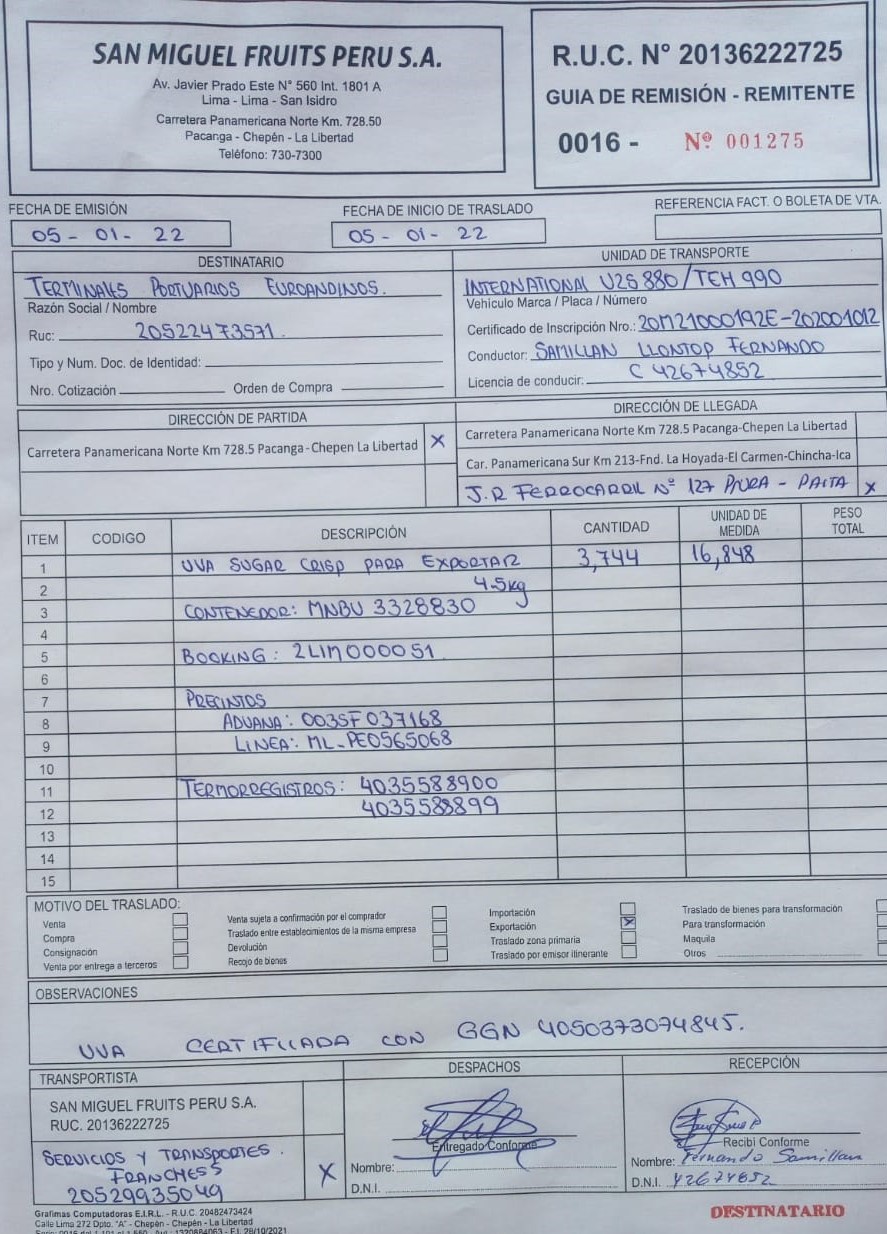 SAN MIGUEL FRUITS PERU S.A.
Av. Javier Prado Este N° 560 Int. 1801 A
Lima - Lima - San Isidro
Carretera Panamericana Norte Km. 728.50
Pacanga - Chepén - La Libertad
Teléfono: 730-7300
R.U.C. N° 20136222725
GUIA DE REMISIÓN - REMITENTE
0016 - Nº 001275
FECHA DE EMISIÓN
05 - 01 - 22
FECHA DE INICIO DE TRASLADO
05 - 01 - 22
REFERENCIA FACT. O BOLETA DE VTA.
DESTINATARIO
TERMINALES PORTUARIOS EUROANDINOS.
Razón Social / Nombre
Ruc: 20522473571.
Tipo y Num. Doc. de Identidad:
Nro. Cotización Orden de Compra
UNIDAD DE TRANSPORTE
INTERNATIONAL V2S 880/TEH 990
Vehículo Marca / Placa / Número
Certificado de Inscripción Nro.: 20M21000192E-202001012
Conductor: SAMILLAN LLONTOP FERNANDO
Licencia de conducir: C 42674852
DIRECCIÓN DE PARTIDA
Carretera Panamericana Norte Km 728.5 Pacanga-Chepen La Libertad X
DIRECCIÓN DE LLEGADA
Carretera Panamericana Norte Km 728.5 Pacanga-Chepen La Libertad
Car. Panamericana Sur Km 213-Fnd. La Hoyada-El Carmen-Chincha-Ica
J.R FERROCARRIL Nº 127 PIURA - PAITA X
ITEM CODIGO DESCRIPCIÓN CANTIDAD UNIDAD DE MEDIDA PESO TOTAL
1 UVA SUGAR CRISP PARA EXPORTAR 3,744 16,848
2 4.5kg
3 CONTENEDOR: MNBU 3328830
4
5 BOOKING: 2LIM000051
6
7 PRECINTOS
8 ADUANA: 003SF037168
9 LINEA: ML-PE0565068
10
11 TERMORREGISTROS: 4035588900
12 4035588899
13
14
15
MOTIVO DEL TRASLADO:
Venta
Compra
Consignación
Venta por entrega a terceros
Venta sujeta a confirmación por el comprador
Traslado entre establecimientos de la misma empresa
Devolución
Recojo de bienes
Importación
Exportación X
Traslado zona primaria
Traslado por emisor itinerante
Traslado de bienes para transformación
Para transformación
Maquila
Otros
OBSERVACIONES
UVA CERTIFICADA CON GGN 4050373074845.
TRANSPORTISTA
SAN MIGUEL FRUITS PERU S.A.
RUC. 20136222725
SERVICIOS Y TRANSPORTES
FRANCHESS X
20529935049
DESPACHOS
Entregado Conforme
Nombre:
D.N.I.
RECEPCIÓN
Recibi Conforme
Nombre: Fernando Samillan
D.N.I. 42674852
Grafimas Computadoras E.I.R.L. - R.U.C. 20482473424
Calle Lima 272 Dpto. "A" - Chepén - Chepén - La Libertad
DESTINATARIO